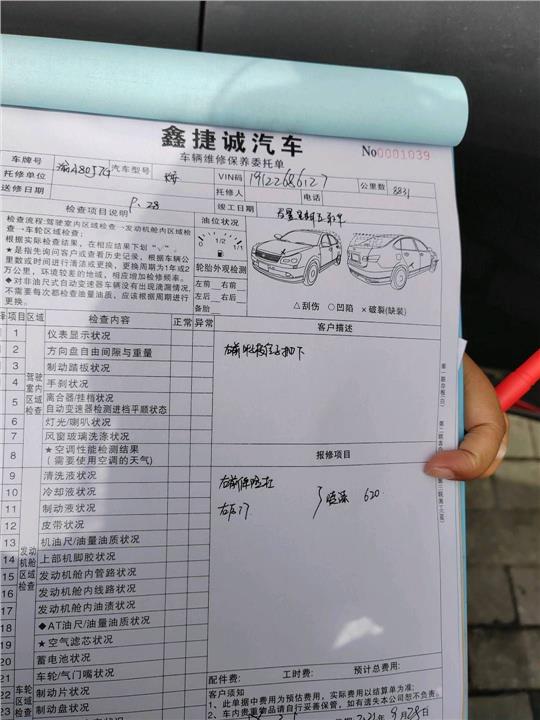 鑫捷诚汽车
车辆维修保养委托单
No0001039
车牌号 汽车型号 VIN码 19122686127 公里数 8831
托修单位 托修人 电话
送修日期 9.28 竣工日期
检查项目说明
油位状况
检查流程:驾驶室内区域检查→发动机舱内区域检查→车轮区域检查;
根据实际检查结果,在相应结果下划“✓”。
★是指先询问客户或查看历史记录,根据车辆公里数或时间进行清洁或更换,更换周期为1年或2万公里,环境较差的地域,相应增加检修频率。
◆对非油尺式自动变速器车辆没有出现滴漏情况,不需要每次都检查油量油质,应该根据周期进行更换。
0 1/2 1/1
轮胎外观检测
左前 右前
左后 右后
备胎
△刮伤 ○凹陷 ×破裂(缺装)
选择 项目 区域 检查内容 正常 异常
客户描述
驾驶室内区域检查
1 仪表显示状况
2 方向盘自由间隙与重量
3 制动踏板状况
4 手刹状况
5 离合器/挂档状况
自动变速器检测进档平顺状态
6 灯光/喇叭状况
7 风窗玻璃洗涤状况
8 ★空调性能检测结果
(需要使用空调的天气)
报修项目
右前保险杠
右后门
喷漆 620
发动机舱区域检查
9 清洗液状况
10 冷却液状况
11 制动液状况
12 皮带状况
13 机油尺/油量油质状况
14 上部机脚胶状况
15 发动机舱内管路状况
16 发动机舱内线路状况
17 发动机舱内油渍状况
18 ◆AT油尺/油量油质状况
19 ★空气滤芯状况
20 蓄电池状况
车轮区域检查
21 车轮/气门嘴状况
22 制动片状况
23 制动盘状况
配件费: 工时费: 预计总费用:
客户须知
1、此单据中费用为预估费用,实际费用以结算单为准;
2、车内贵重物品请自行妥善保管,如有遗失本公司恕不负责。
2021年9月28日